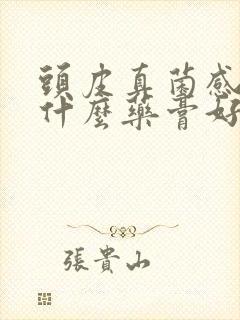 頭皮真菌感
什麼藥膏好
張貴山